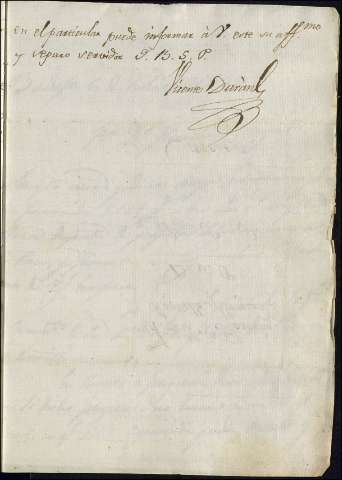 en el particular puede informar à V. este su aff.mo
y seguro servidor Q. B. S. P.
Vicente Durànd